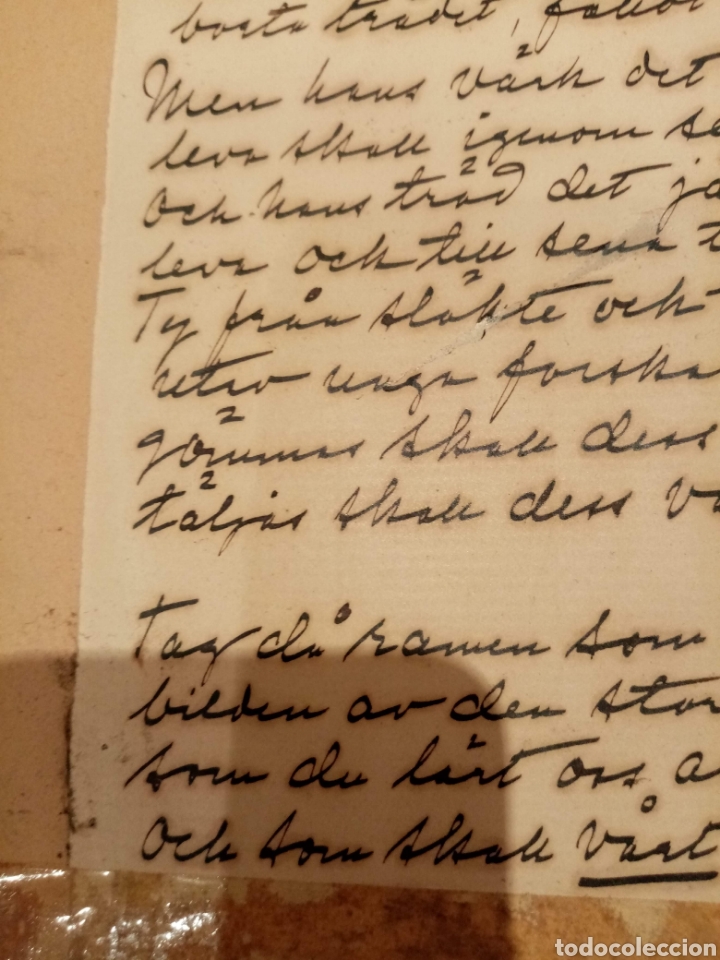 borta trädet, faller
Men hans värk det
leva skall igenom se
Och hans träd det ja
leva och till sena t
Ty från släkte och
unga forska
gömmas skall dess
täljas skall dess va
Tag du ramen som
bilden av den stor
som du lärt oss a
och som skall vårt
todocoleccion